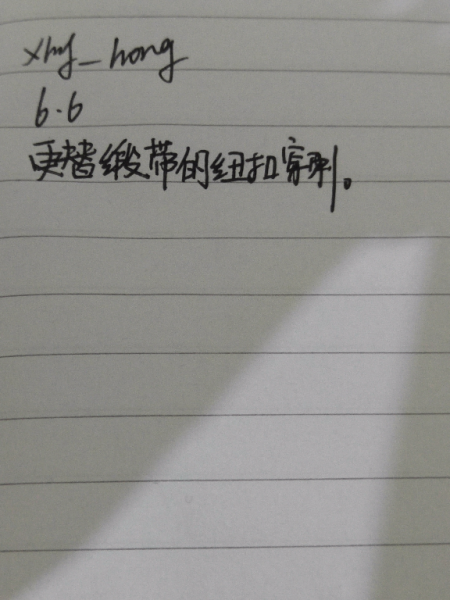 xhy_hong
6.6
更替缎带的纽扣穿刺。